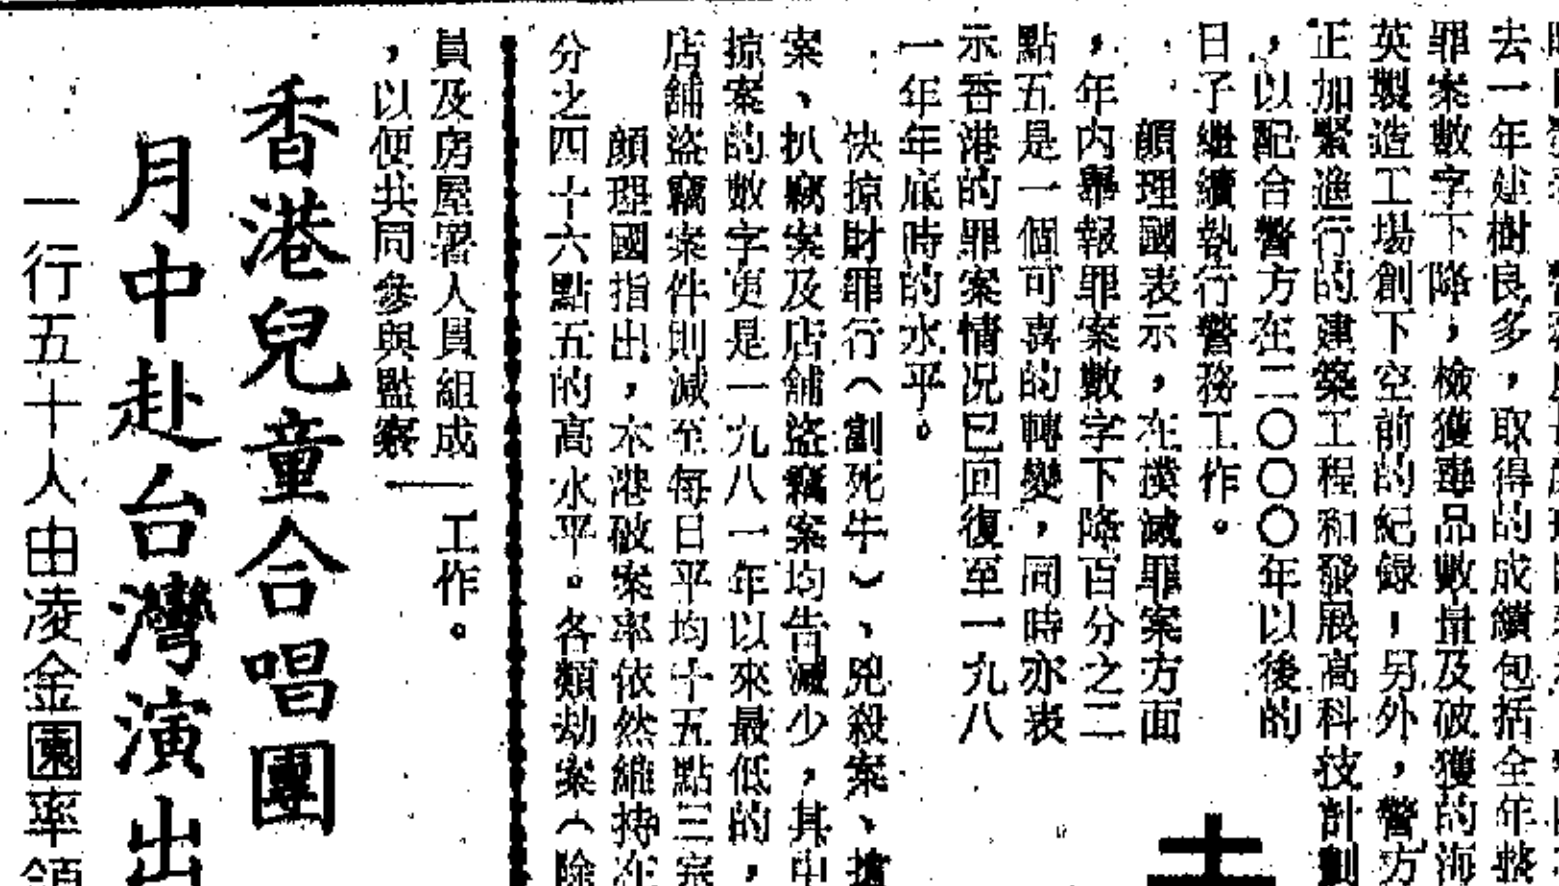 去一年建樹良多，取得的成績包括全年整
罪案數字下降，檢獲毒品數量及破獲的海
英製造工場創下空前的紀錄！另外，警方
正加緊進行的建築工程和發展高科技計劃
，以配合警方在二〇〇〇年以後的
日子繼續執行警務工作。
顏理國表示，在撲滅罪案方面
，年內舉報罪案數字下降百分之二
點五是一個可喜的轉變，同時亦表
示香港的罪案情况已回復至一九八
一年年底時的水平。
快掠財罪行（劏死牛）、兇殺案、搶
案、扒竊案及店舖盜竊案均告減少，其中
掠案的數字更是一九八一年以來最低的，
店舖盜竊案件則減至每日平均十五點三宗
顏理國指出，本港破案率依然維持在
分之四十六點五的高水平。各類劫案（除
員及房屋署人員組成
，以便共同參與監察
工作。
香港兒童合唱團
月中赴台灣演出
一行五十人由凌金園率領